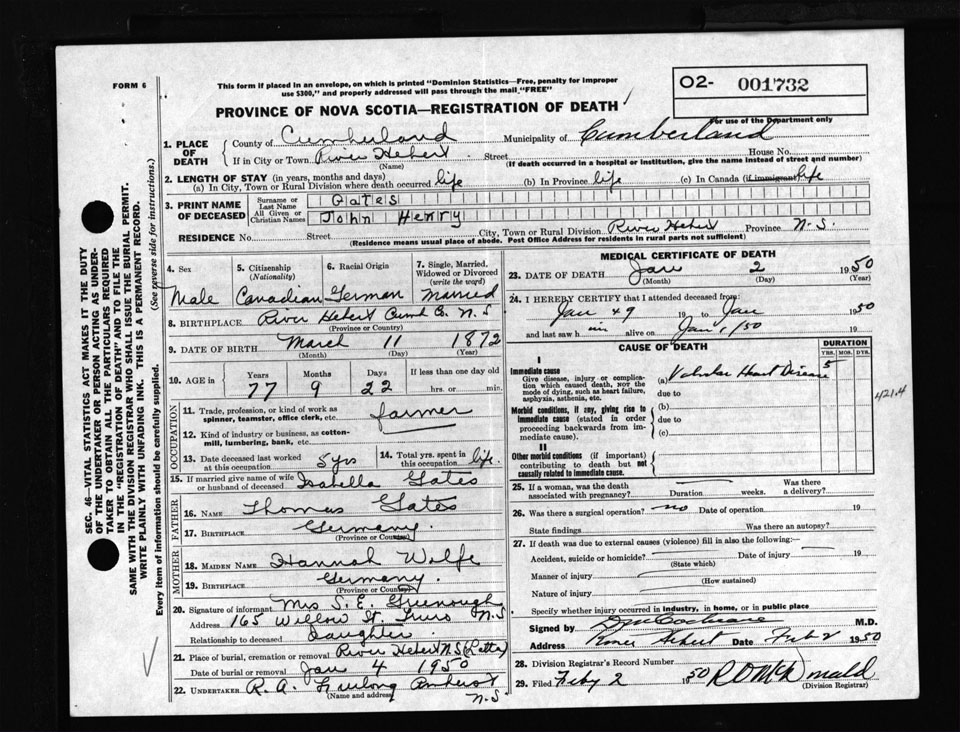 FORM 6
This form if placed in an envelope, on which is printed "Dominion Statistics—Free, penalty for improper
use $300," and properly addressed will pass through the mail "FREE"
O2- 001732
For use of the Department only
PROVINCE OF NOVA SCOTIA—REGISTRATION OF DEATH
1. PLACE OF DEATH
County of Cumberland Municipality of Cumberland
If in City or Town River Hebert Street House No.
(Name) (If death occurred in a hospital or institution, give the name instead of street and number)
2. LENGTH OF STAY (in years, months and days)
(a) In City, Town or Rural Division where death occurred life (b) In Province life (c) In Canada (if immigrant) life
3. PRINT NAME OF DECEASED
Surname or Last Name Gates
All Given or Christian Names John Henry
RESIDENCE No. Street City, Town or Rural Division River Hebert Province N.S.
(Residence means usual place of abode. Post Office Address for residents in rural parts not sufficient)
4. Sex Male
5. Citizenship (Nationality) Canadian
6. Racial Origin German
7. Single, Married, Widowed or Divorced (write the word) married
8. BIRTHPLACE River Hebert Cumb Co. N.S
(Province or Country)
9. DATE OF BIRTH March 11 1872
(Month) (Day) (Year)
10. AGE in Years Months Days If less than one day old
77 9 22 hrs. or min.
OCCUPATION
11. Trade, profession, or kind of work as spinner, teamster, office clerk, etc. farmer
12. Kind of industry or business, as cotton-mill, lumbering, bank, etc.
13. Date deceased last worked at this occupation 5 yrs
14. Total yrs. spent in this occupation life.
15. If married give name of wife or husband of deceased Isabella Gates
FATHER
16. NAME Thomas Gates
17. BIRTHPLACE Germany.
(Province or Country)
MOTHER
18. MAIDEN NAME Hannah Wolfe
19. BIRTHPLACE Germany.
(Province or Country)
20. Signature of informant Mrs S. E. Greenough
Address 165 Willow St. Truro N.S
Relationship to deceased Daughter
21. Place of burial, cremation or removal River Hebert N.S
Date of burial or removal Jan 4 1950
22. UNDERTAKER R. A. Furlong Amherst N.S
(Name and address)
MEDICAL CERTIFICATE OF DEATH
23. DATE OF DEATH Jan 2 1950
(Month) (Day) (Year)
24. I HEREBY CERTIFY that I attended deceased from:
Jan 49 19 to Jan 1950
and last saw h im alive on Jan 1/50 19
CAUSE OF DEATH
DURATION
YRS. MOS. DYS.
I
Immediate cause
Give disease, injury or complication which caused death, nor the mode of dying, such as heart failure, asphyxia, asthenia, etc.
(a) Valvular Heart Disease 5
due to
421.4
Morbid conditions, if any, giving rise to Immediate cause (stated in order proceeding backwards from immediate cause).
(b)
due to
(c)
II
Other morbid conditions (if important) contributing to death but not causally related to immediate cause.
25. If a woman, was the death associated with pregnancy? Duration weeks. Was there a delivery?
26. Was there a surgical operation? no Date of operation 19
State findings Was there an autopsy?
27. If death was due to external causes (violence) fill in also the following:
Accident, suicide or homicide? Date of injury 19
(State which)
Manner of injury
(How sustained)
Nature of injury
Specify whether injury occurred in industry, in home, or in public place
Signed by Cochrane M.D.
Address River Hebert Date Feb 2 1950
28. Division Registrar's Record Number
29. Filed Feby 2 1950 R O McDonald
(Division Registrar)
SEC. 46—VITAL STATISTICS ACT MAKES IT THE DUTY
OF THE UNDERTAKER OR PERSON ACTING AS UNDER-
TAKER TO OBTAIN ALL THE PARTICULARS REQUIRED
IN THE "REGISTRATION OF DEATH" AND TO FILE THE
SAME WITH THE DIVISION REGISTRAR WHO SHALL ISSUE THE BURIAL PERMIT.
WRITE PLAINLY WITH UNFADING INK. THIS IS A PERMANENT RECORD.
Every item of information should be carefully supplied. (See reverse side for instructions.)